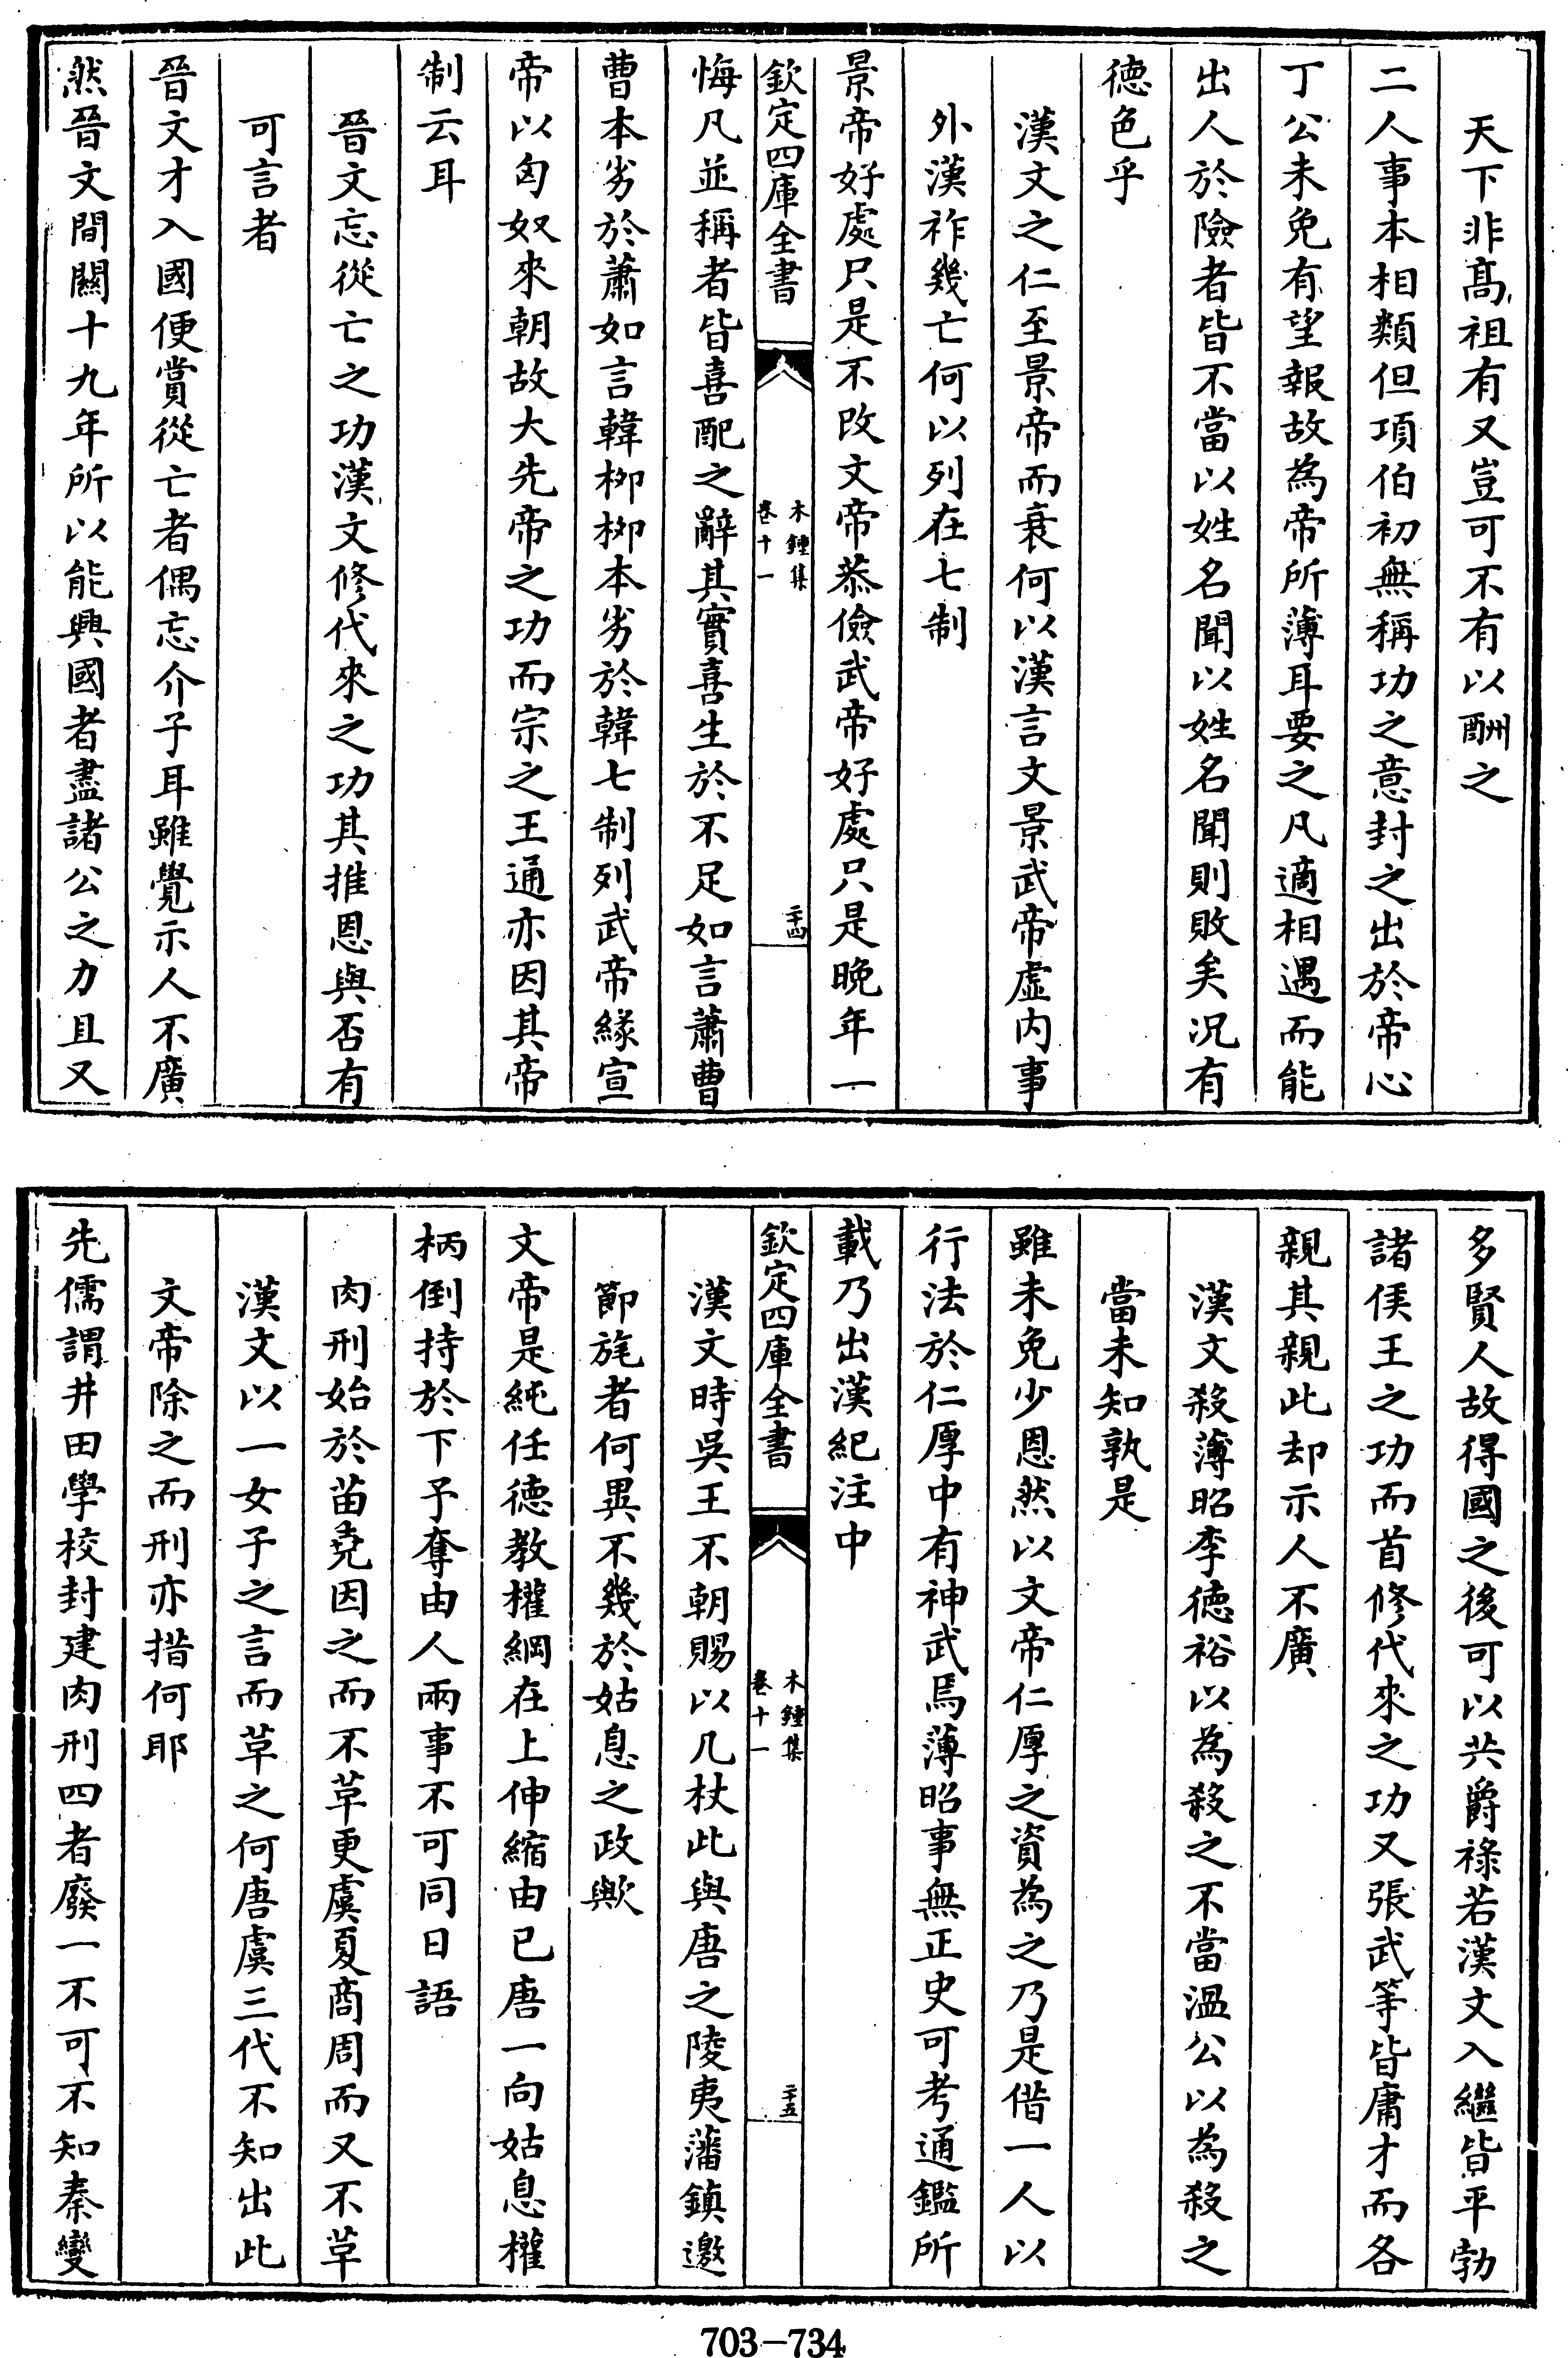 天下非髙祖有又豈可不有以酬之
二人事本相類但項伯初無稱功之意封之出於帝心
丁公未免有望報故為帝所薄耳要之凡適相遇而能
出人於險者皆不當以姓名聞以姓名聞則敗矣況有
徳色乎
漢文之仁至景帝而衰何以漢言文景武帝虛内事
外漢祚幾亡何以列在七制
景帝好處只是不改文帝恭儉武帝好處只是晚年一
欽定四庫全書
木鍾集
卷十一
二十四
悔凡並稱者皆喜配之辭其實喜生於不足如言蕭曹
曹本劣於蕭如言韓栁栁本劣於韓七制列武帝緣宣
帝以匈奴來朝故大先帝之功而宗之王通亦因其帝
制云耳
晉文忘從亡之功漢文修代來之功其推恩與否有
可言者
晉文才入國便賞從亡者偶忘介子耳雖覺示人不廣
然晉文間闗十九年所以能興國者盡諸公之力且又
多賢人故得國之後可以共爵祿若漢文入繼皆平勃
諸侯王之功而首修代來之功又張武等皆庸才而各
親其親此却示人不廣
漢文殺薄昭李徳裕以為殺之不當溫公以為殺之
當未知孰是
雖未免少恩然以文帝仁厚之資為之乃是借一人以
行法於仁厚中有神武焉薄昭事無正史可考通鑑所
載乃出漢紀注中
欽定四庫全書
木鍾集
卷十一
二十五
漢文時吳王不朝賜以几杖此與唐之陵夷藩鎮邀
節旄者何異不幾於姑息之政歟
文帝是純任徳教權綱在上伸縮由已唐一向姑息權
柄倒持於下予奪由人兩事不可同日語
肉刑始於苗堯因之而不革更虞夏商周而又不革
漢文以一女子之言而革之何唐虞三代不知出此
文帝除之而刑亦措何耶
先儒謂井田學校封建肉刑四者廢一不可不知秦變
703-734